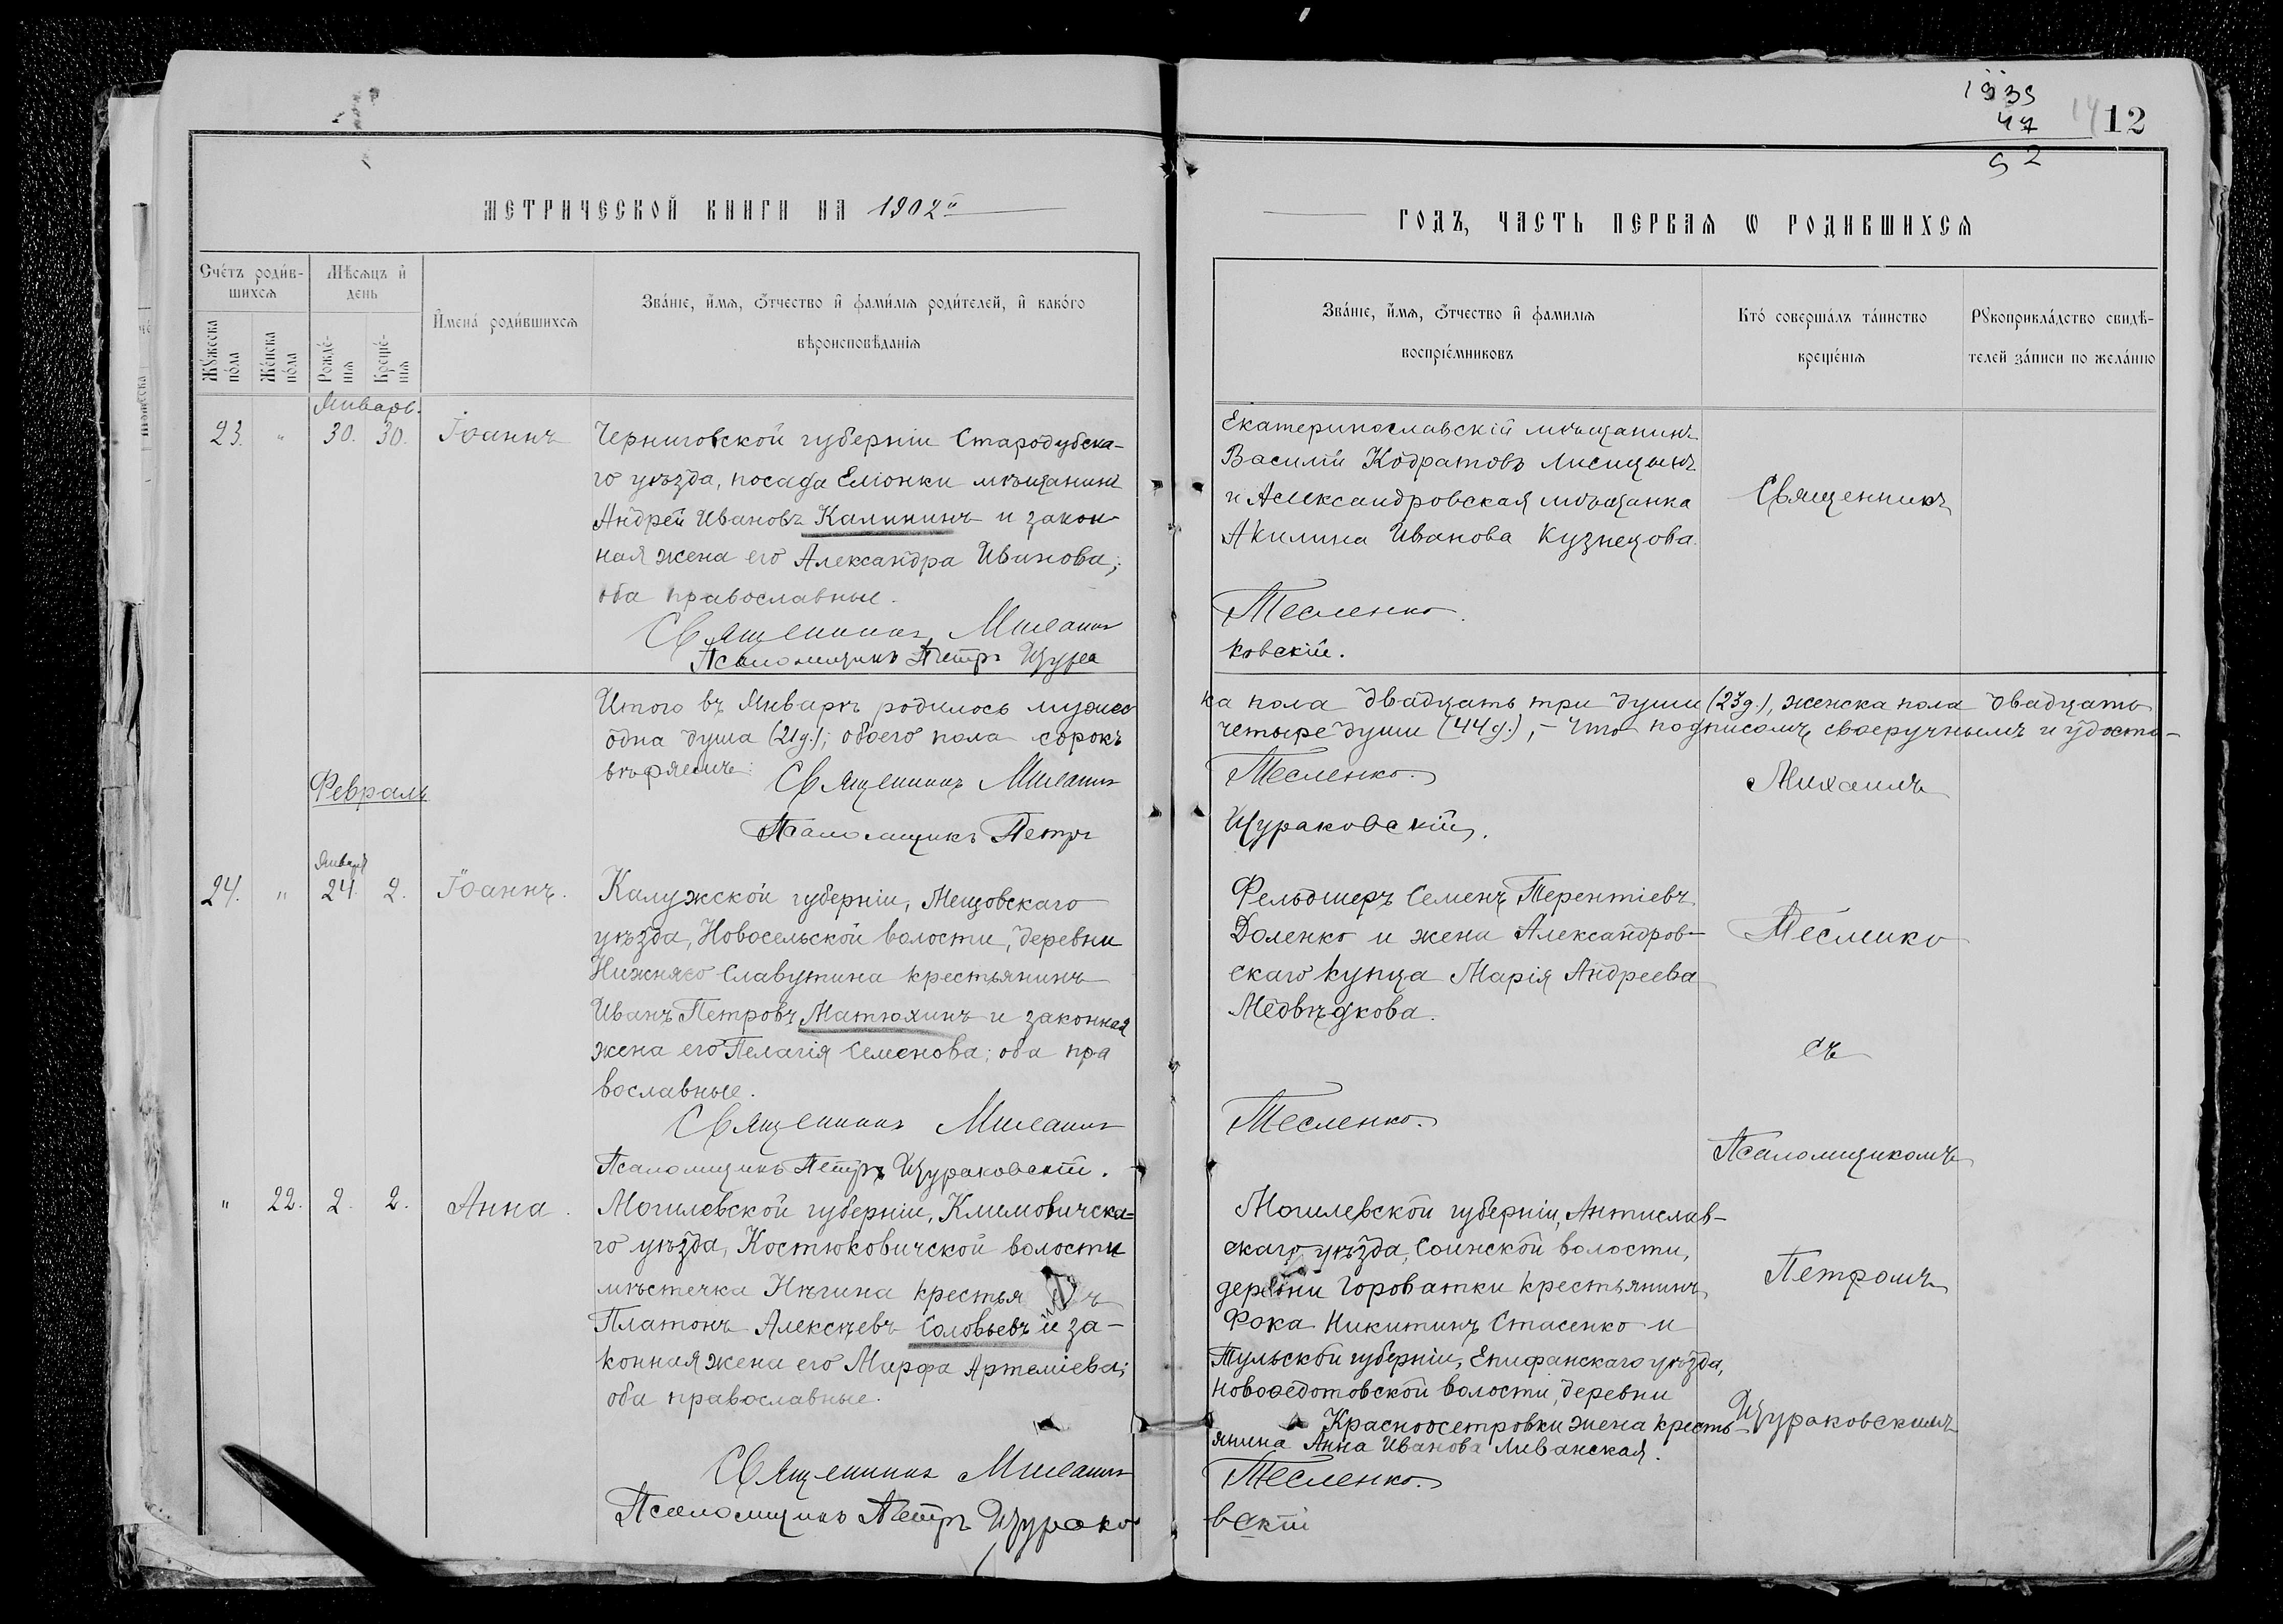 1935
47
52
14
12
МЕТРИЧЕСКОЙ КНИГИ НА 1902й
ГОДЪ, ЧАСТЬ ПЕРВАЯ Ѡ РОДИВШИХСЯ
Счéтъ роди́в-
шихся
Мѣ́сяцъ и҆
день
И҆мена́ роди́вшихся
Зва́нїе, и҆́мя, ѻ҆́тчество и҆ фами́лїя роди́телей, и҆ како́го
вѣроисповѣ́данїя
Мꙋ́жеска
по́ла
Же́нска
по́ла
Рожде́-
нїя
Креще́-
нїя
Зва́нїе, и҆́мя, ѻ҆́тчество и҆ фамилїя
воспрїе́мниковъ
Кто́ соверша́лъ та́инство
креще́нїя
Рꙋкоприкла́дство свидѣ́-
телей за́писи по жела́нїю
Январь.
23. " 30. 30. Іоаннъ
Черниговской губерніи Стародубска-
го уѣзда, посада Еліонки мѣщанинъ
Андрей Ивановъ Калининъ и закон-
ная жена его Александра Иванова;
оба православные.
Священникъ Михаилъ
Псаломщикъ Петръ Щура
Екатеринославскій мѣщанинъ
Василій Кодратовъ Лисицынъ
и Александровская мѣщанка
Акилина Иванова Кузнецова.
Тесленко.
ковскій.
Священникъ
Итого въ Январѣ родилось мужес
ка пола двадцать три души (23 д.), женска пола двадцать
одна душа (21 д.); обоего пола сорокъ
четыре души (44 д.), – что подписомъ своеручнымъ и удосто-
вѣряемъ: Священникъ Михаилъ
Тесленко.
Михаилъ
Февраль
Псаломщикъ Петръ
Щураковскій.
Январь
24. " 24. 2. Іоаннъ.
Калужской губерніи, Мещовскаго
уѣзда, Новосельской волости, деревни
Нижняго Славутина крестьянинъ
Иванъ Петровъ Матюхинъ и законная
жена его Пелагія Семенова; оба пра
вославные.
Священникъ Михаилъ
Псаломщикъ Петръ Щураковскій.
Фельдшеръ Семенъ Терентіевъ
Доленко и жена Александров-
скаго купца Марія Андреева
Медвѣдкова.
Тесленко.
Тесленко
съ
Псаломщикомъ
" 22. 2. 2. Анна.
Могилевской губерніи, Климовичска=
го уѣзда, Костюковичской волости
мѣстечка Нѣгина крестья
Платонъ Алексѣевъ Соловьевъ и за-
конная жена его Марфа Артеміева;
оба православные.
Священникъ Михаилъ
Псаломщикъ Петръ Щурако
Могилевской губерніи, Мстислав-
скаго уѣзда, Соинской волости,
деревни Гороватки крестьянинъ
Фока Никитинъ Стасенко и
Тульской губерніи, Епифанскаго уѣзда,
Новоѳедотовской волости, деревни
Красноосетровки жена кресть-
янина Анна Иванова Ливанская.
Тесленко.
вскій
Петромъ
Щураковскимъ